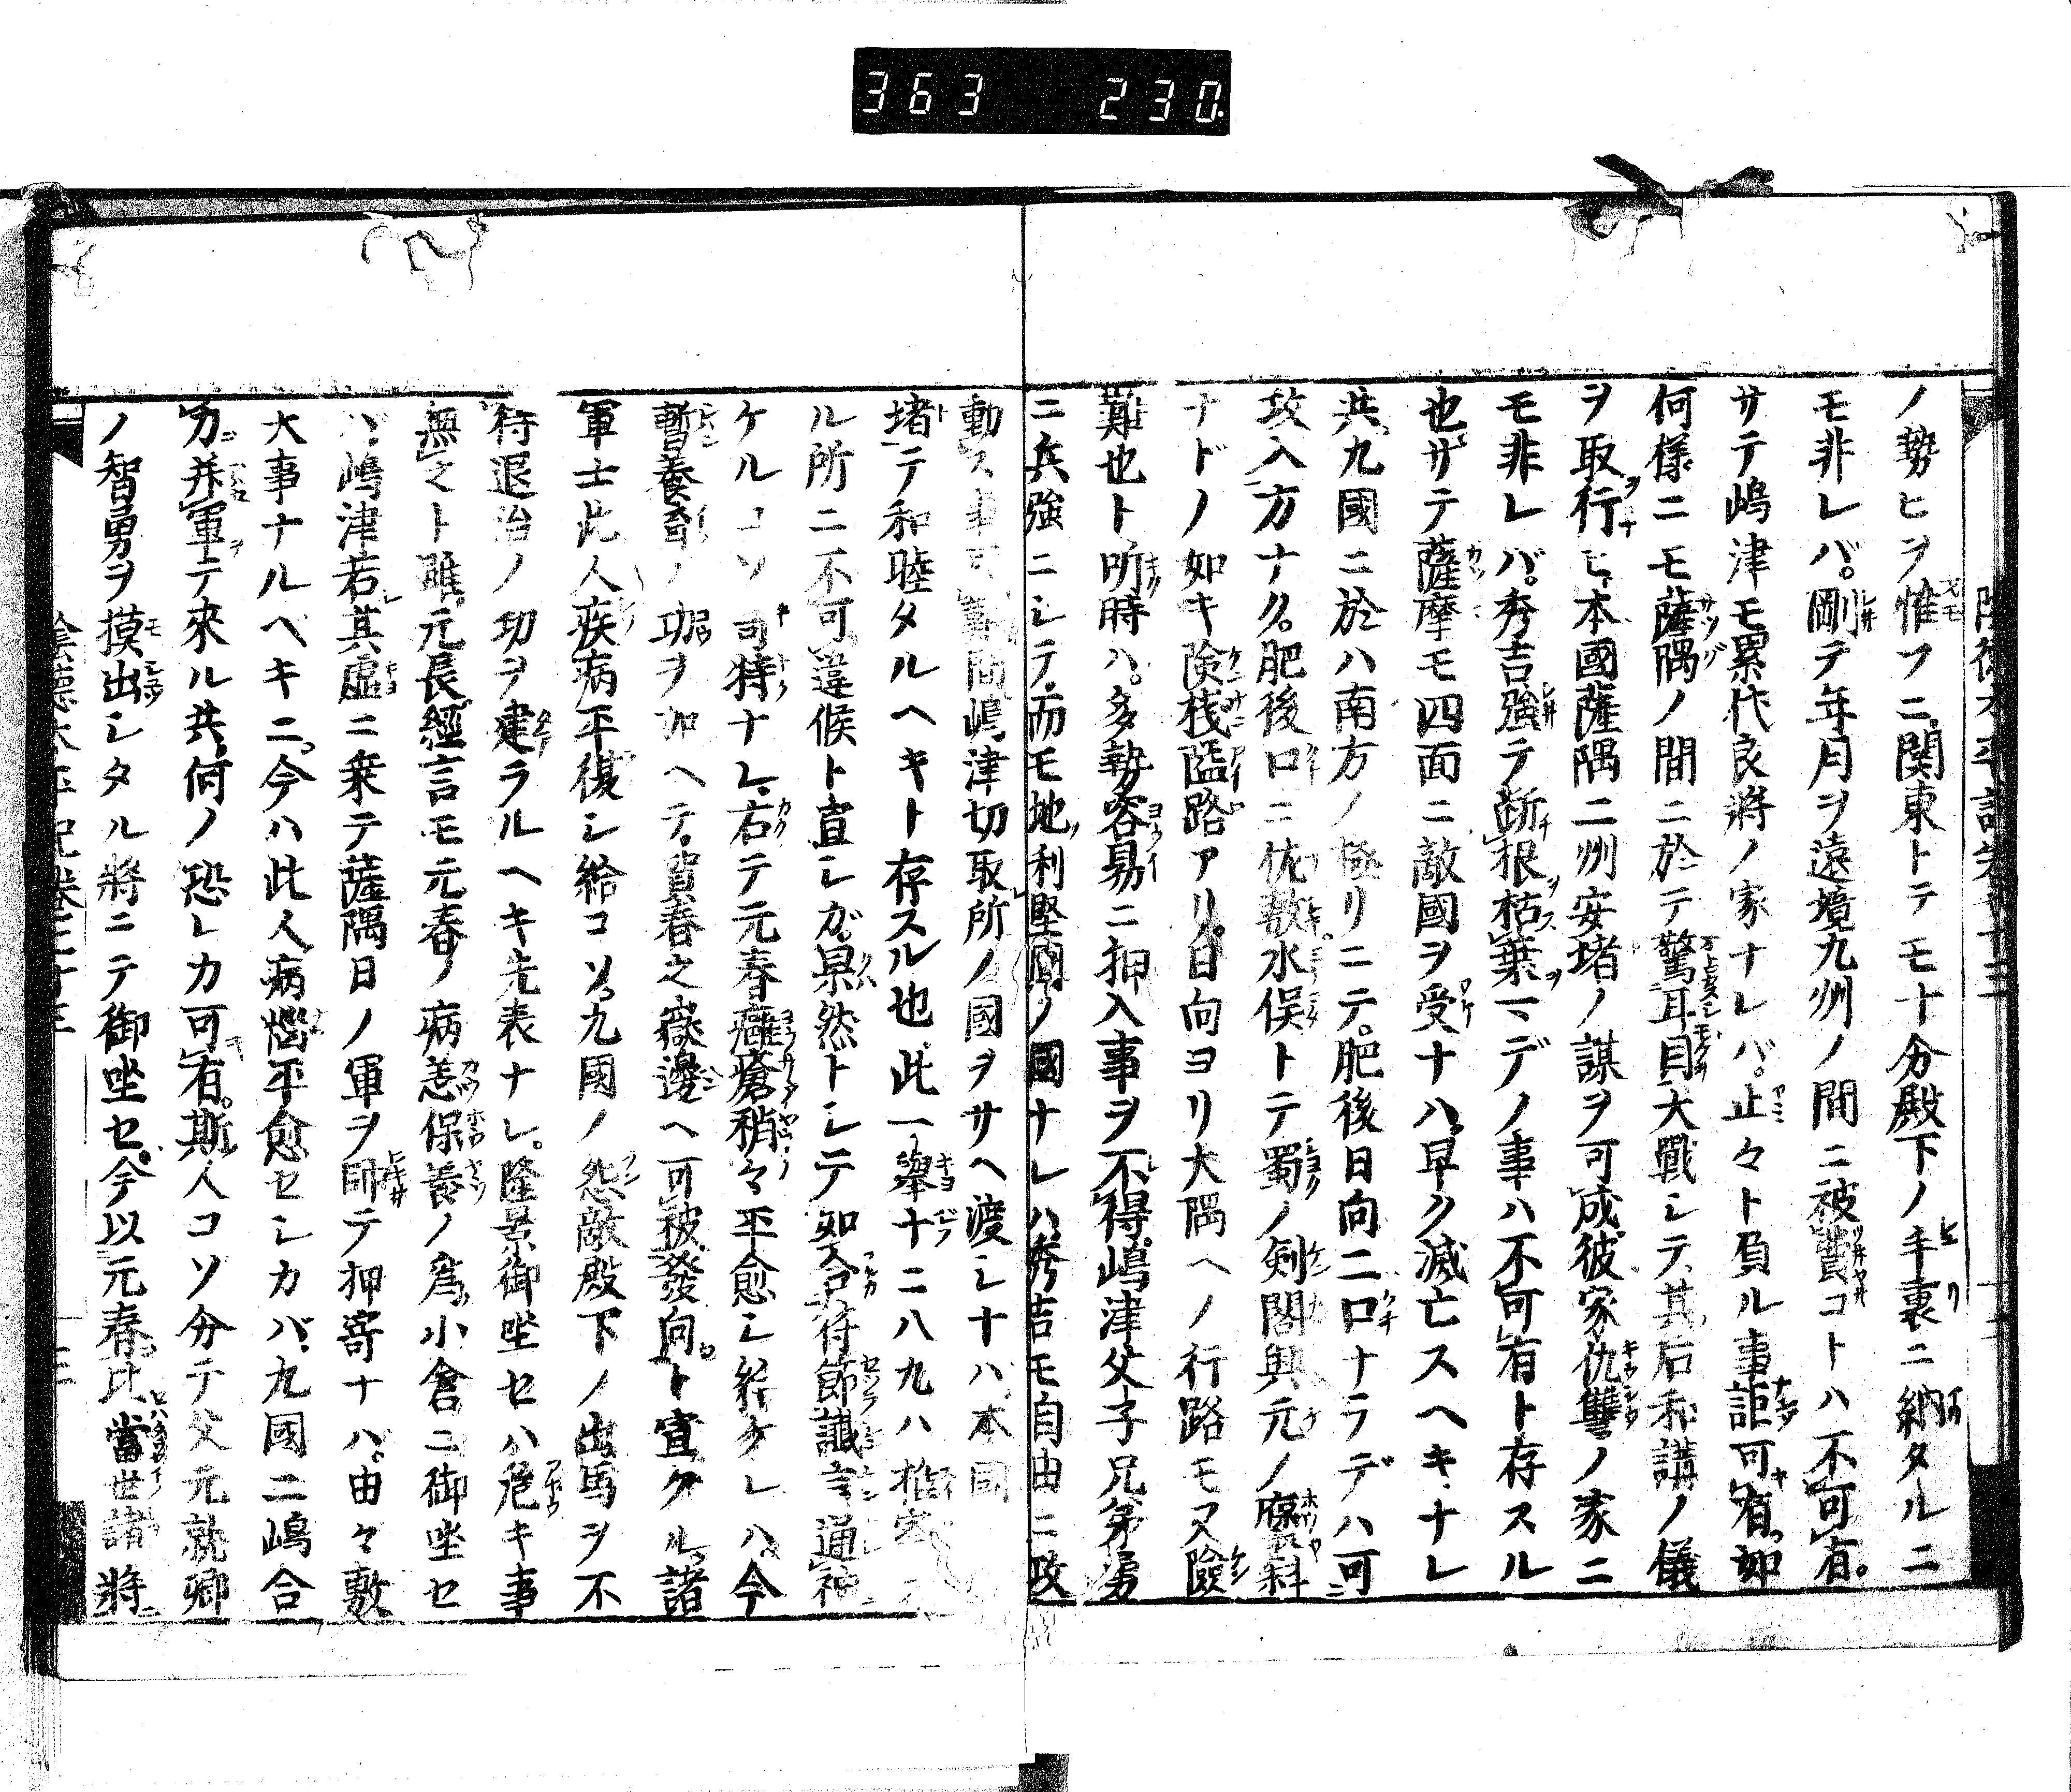 363 230
ノ勢ヒヲ惟フニ関東トテモ十分殿下ノ手裏ニ納タルニ
モ非レバ。剛テ年月ヲ遠境九州ノ間ニ被費コトハ不可有。
サテ嶋津モ累代良將ノ家ナレバ。止々ト負ル事詎可有。如
何様ニモ薩隅ノ間ニ於テ驚耳目大戰シテ其后和講ノ儀
ヲ取行ヒ本國薩隅二州安堵ノ謀ヲ可成彼家仇讐ノ家ニ
モ非レバ。秀吉強テ断根枯葉マデノ事ハ不可有ト存スル
也サテ薩摩モ四面ニ敵國ヲ受ナハ早ク滅亡スヘキナレ
共九國ニ於ハ南方ノ極リニテ。肥後日向二口ナラデハ可
攻入方ナク。肥後口ニ佐敷水俣トテ蜀ノ剣閣興元ノ斜
ナドノ如キ険棧隘路アリ。日向ヨリ大隅ヘノ行路モ又險
難也ト所時ハ。多勢容易ニ押入事ヲ不得嶋津父子兄弟勇
ニ兵強ニシテ而モ地利堅固ノ國ナレハ秀吉モ自由ニ攻
動ス事可 嶋津切取所ノ國ヲサヘ渡シナハ本國
堵テ和睦タルヘキト存スル也此一舉十ニ八九ハ推
ル所ニ不可違候ト宣シガ。果然トシテ如合符節讖言通神
ケルコソ奇特ナレ右テ元春癰瘡稍々平愈シ給ケレハ今
暫養ノ功ヲ加ヘテ。賀春之嶽邊ヘ可被發向ト宣ケル諸
軍士此人疾病平復シ給コソ九國ノ怨敵殿下ノ出馬ヲ不
待退治ノ功ヲ建ラルヘキ先表ナレ。隆景御坐セハ危キ事
無之ト雖元長經言モ元春ノ病恙保養ノ為小倉ニ御坐セ
バ嶋津若其虚ニ乗テ薩隅日ノ軍ヲ帥テ押寄ナハ。由々敷
大事ナルヘキニ。今ハ此人病惱平愈セシカバ九國二嶋合
力并軍テ來ル共何ノ恐レカ可有。斯人コソ分テ父元就卿
ノ智勇ヲ摸出シタル將ニテ御坐セ。今以元春比當世諸將